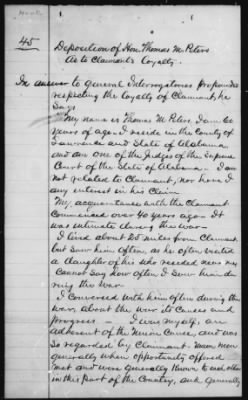 45
Deposition of Hon. Thomas M. Peters
As to Claimant's Loyalty.
In answer to general Interrogatories propounded
respecting the loyalty of Claimant, he
Says
"My name is Thomas M. Peters. I am 60
years of age. I reside in the County of
Lawrence and State of Alabama
and am one of the Judges of the Supreme
Court of the State of Alabama - I am
not related to Claimant, nor have I
any interest in his Claim
My acquaintance with the Claimant
Commenced over 40 years ago. It
was intimate during the war -
I lived about 25 miles from Claimant,
but saw him often, as he often visited
a daughter of his who resided near me
Cannot Say how often I Saw him du
ring the War.
I Conversed with him often during the
war, about the war its Causes and
progress - I was myself, an
adherent of the Union Cause, and was
so regarded by Claimant. Union men
generally when opportunity offered
met and were generally known to each other
in this part of the Country, and generally